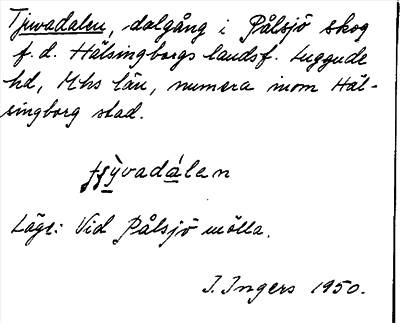 Tjuvadalen, dalgång i Pålsjö skog
f.d. Hälsingborgs landsf. Luggude
hd, Mhs län, numera inom Häl-
singborg stad.
Läge: Vid Pålsjö mölla.
I. Ingers 1950.